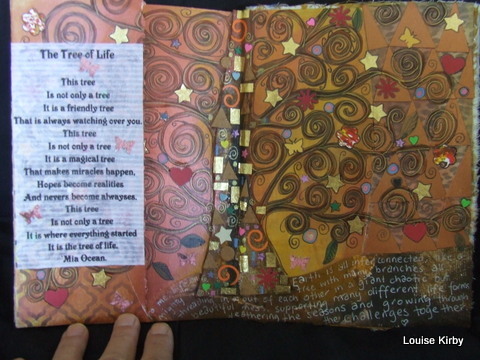 The Tree of Life
This tree
Is not only a tree
It is a friendly tree
That is always watching over you.
This tree
Is not only a tree
It is a magical tree
That makes miracles happen,
Hopes become realities
And nevers become alwayses.
This tree
Is not only a tree
It is where everything started
It is the tree of life.
Mia Ocean.
Earth is all interconnected, like a
tree with many branches all
in & out of each other in a giant chaotic but
beautiful mess, supporting many different life forms
weathering the seasons and growing through
the challenges together
Louise Kirby